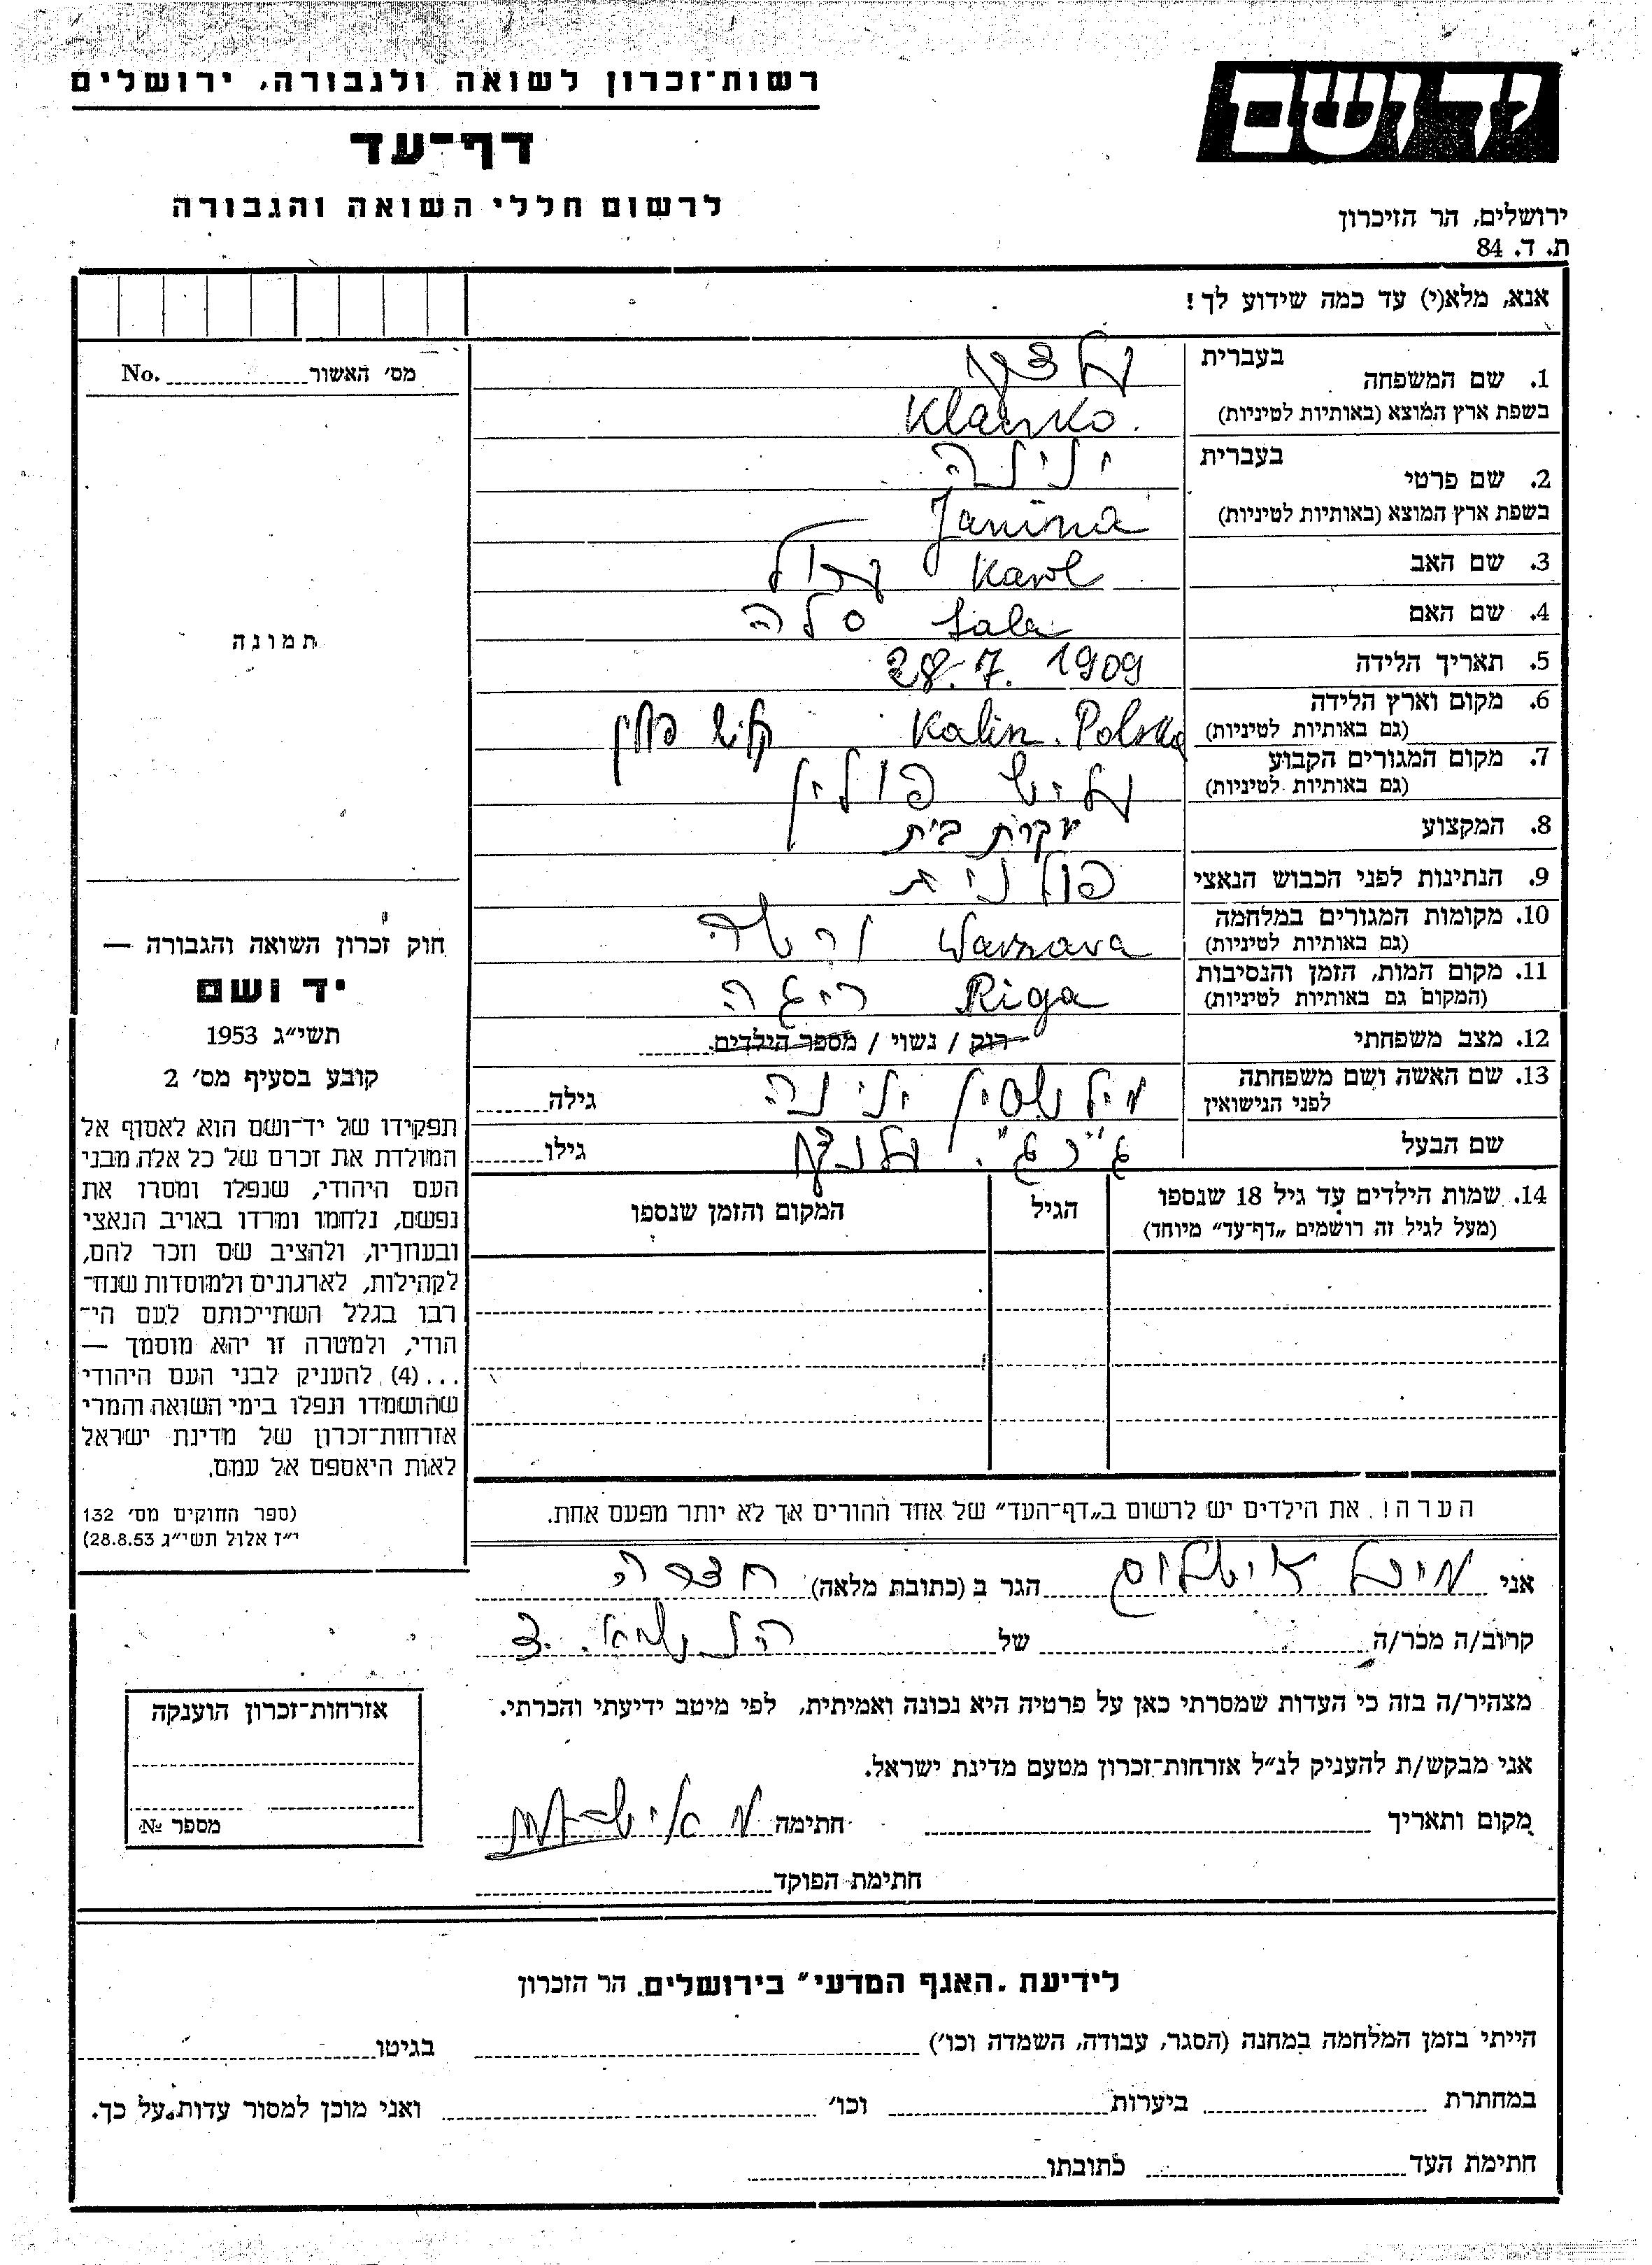 רשות־זכרון לשואה ולגבורה, ירושלים
יד ושם
דף־עד
לרשום חללי השואה והגבורה
ירושלים, הר הזיכרון
ת. ד. 84
אנא, מלא(י) עד כמה שידוע לך!
1. שם המשפחה בעברית
בשפת ארץ המוצא (באותיות לטיניות) Klansko
2. שם פרטי בעברית ינינה
בשפת ארץ המוצא (באותיות לטיניות) Janina
3. שם האב Karol קרול
4. שם האם Sala סלה
5. תאריך הלידה 28.7.1909
6. מקום וארץ הלידה Kalisz. Polska קליש פולין
(גם באותיות לטיניות)
7. מקום המגורים הקבוע קליש פולין
(גם באותיות לטיניות)
8. המקצוע עקרת בית
9. הנתינות לפני הכבוש הנאצי פולנית
10. מקומות המגורים במלחמה Warszava ורשה
(גם באותיות לטיניות)
11. מקום המות, הזמן והנסיבות Riga ריגה
(המקום גם באותיות לטיניות)
12. מצב משפחתי רוק / נשוי / מספר הילדים
13. שם האשה ושם משפחתה ינינה גילה
לפני הנישואין
שם הבעל גילו
14. שמות הילדים עד גיל 18 שנספו הגיל המקום והזמן שנספו
(מעל לגיל זה רושמים „דף־עד” מיוחד)
מס׳ האשור No.
תמונה
חוק זכרון השואה והגבורה —
יד ושם
תשי״ג 1953
קובע בסעיף מס׳ 2
תפקידו של יד־ושם הוא לאסוף אל
המולדת את זכרם של כל אלה מבני
העם היהודי, שנפלו ומסרו את
נפשם, נלחמו ומרדו באויב הנאצי
ובעוזריו, ולהציב שם וזכר להם,
לקהילות, לארגונים ולמוסדות שנח־
רבו בגלל השתייכותם לעם הי־
הודי, ולמטרה זו יהא מוסמך —
...(4) להעניק לבני העם היהודי
שהושמדו ונפלו בימי השואה והמרי
אזרחות־זכרון של מדינת ישראל
לאות היאספם אל עמם.
(ספר החוקים מס׳ 132
י״ז אלול תשי״ג 28.8.53)
הערה! את הילדים יש לרשום ב„דף־העד” של אחד ההורים אך לא יותר מפעם אחת.
אני הגר ב (כתובת מלאה) חדרה
קרוב/ה מכר/ה של
מצהיר/ה בזה כי העדות שמסרתי כאן על פרטיה היא נכונה ואמיתית, לפי מיטב ידיעתי והכרתי.
אני מבקש/ת להעניק לנ״ל אזרחות־זכרון מטעם מדינת ישראל.
מקום ותאריך חתימה
חתימת הפוקד
אזרחות־זכרון הוענקה
מספר №
לידיעת „האגף המדעי” בירושלים. הר הזכרון
הייתי בזמן המלחמה במחנה (הסגר, עבודה, השמדה וכו׳) בגיטו
במחתרת ביערות וכו׳ ואני מוכן למסור עדות על כך.
חתימת העד כתובתו